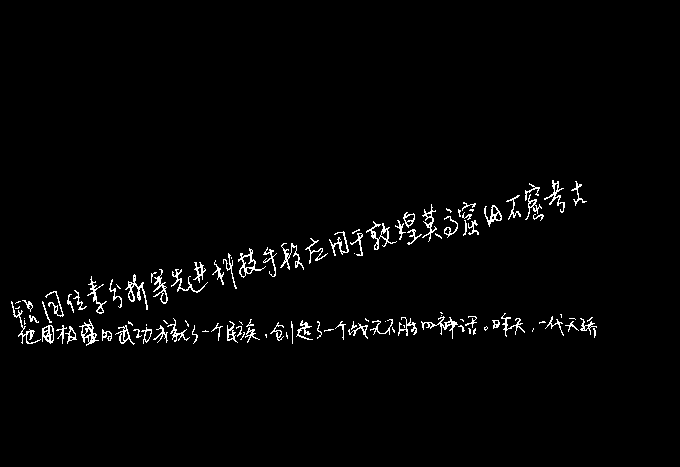 铅同位素分析等先进科技手段应用于敦煌莫高窟的石窟考古
他用极盛的武功成就了一个民族，创造了一个战无不胜的神话。昨天，一代天骄